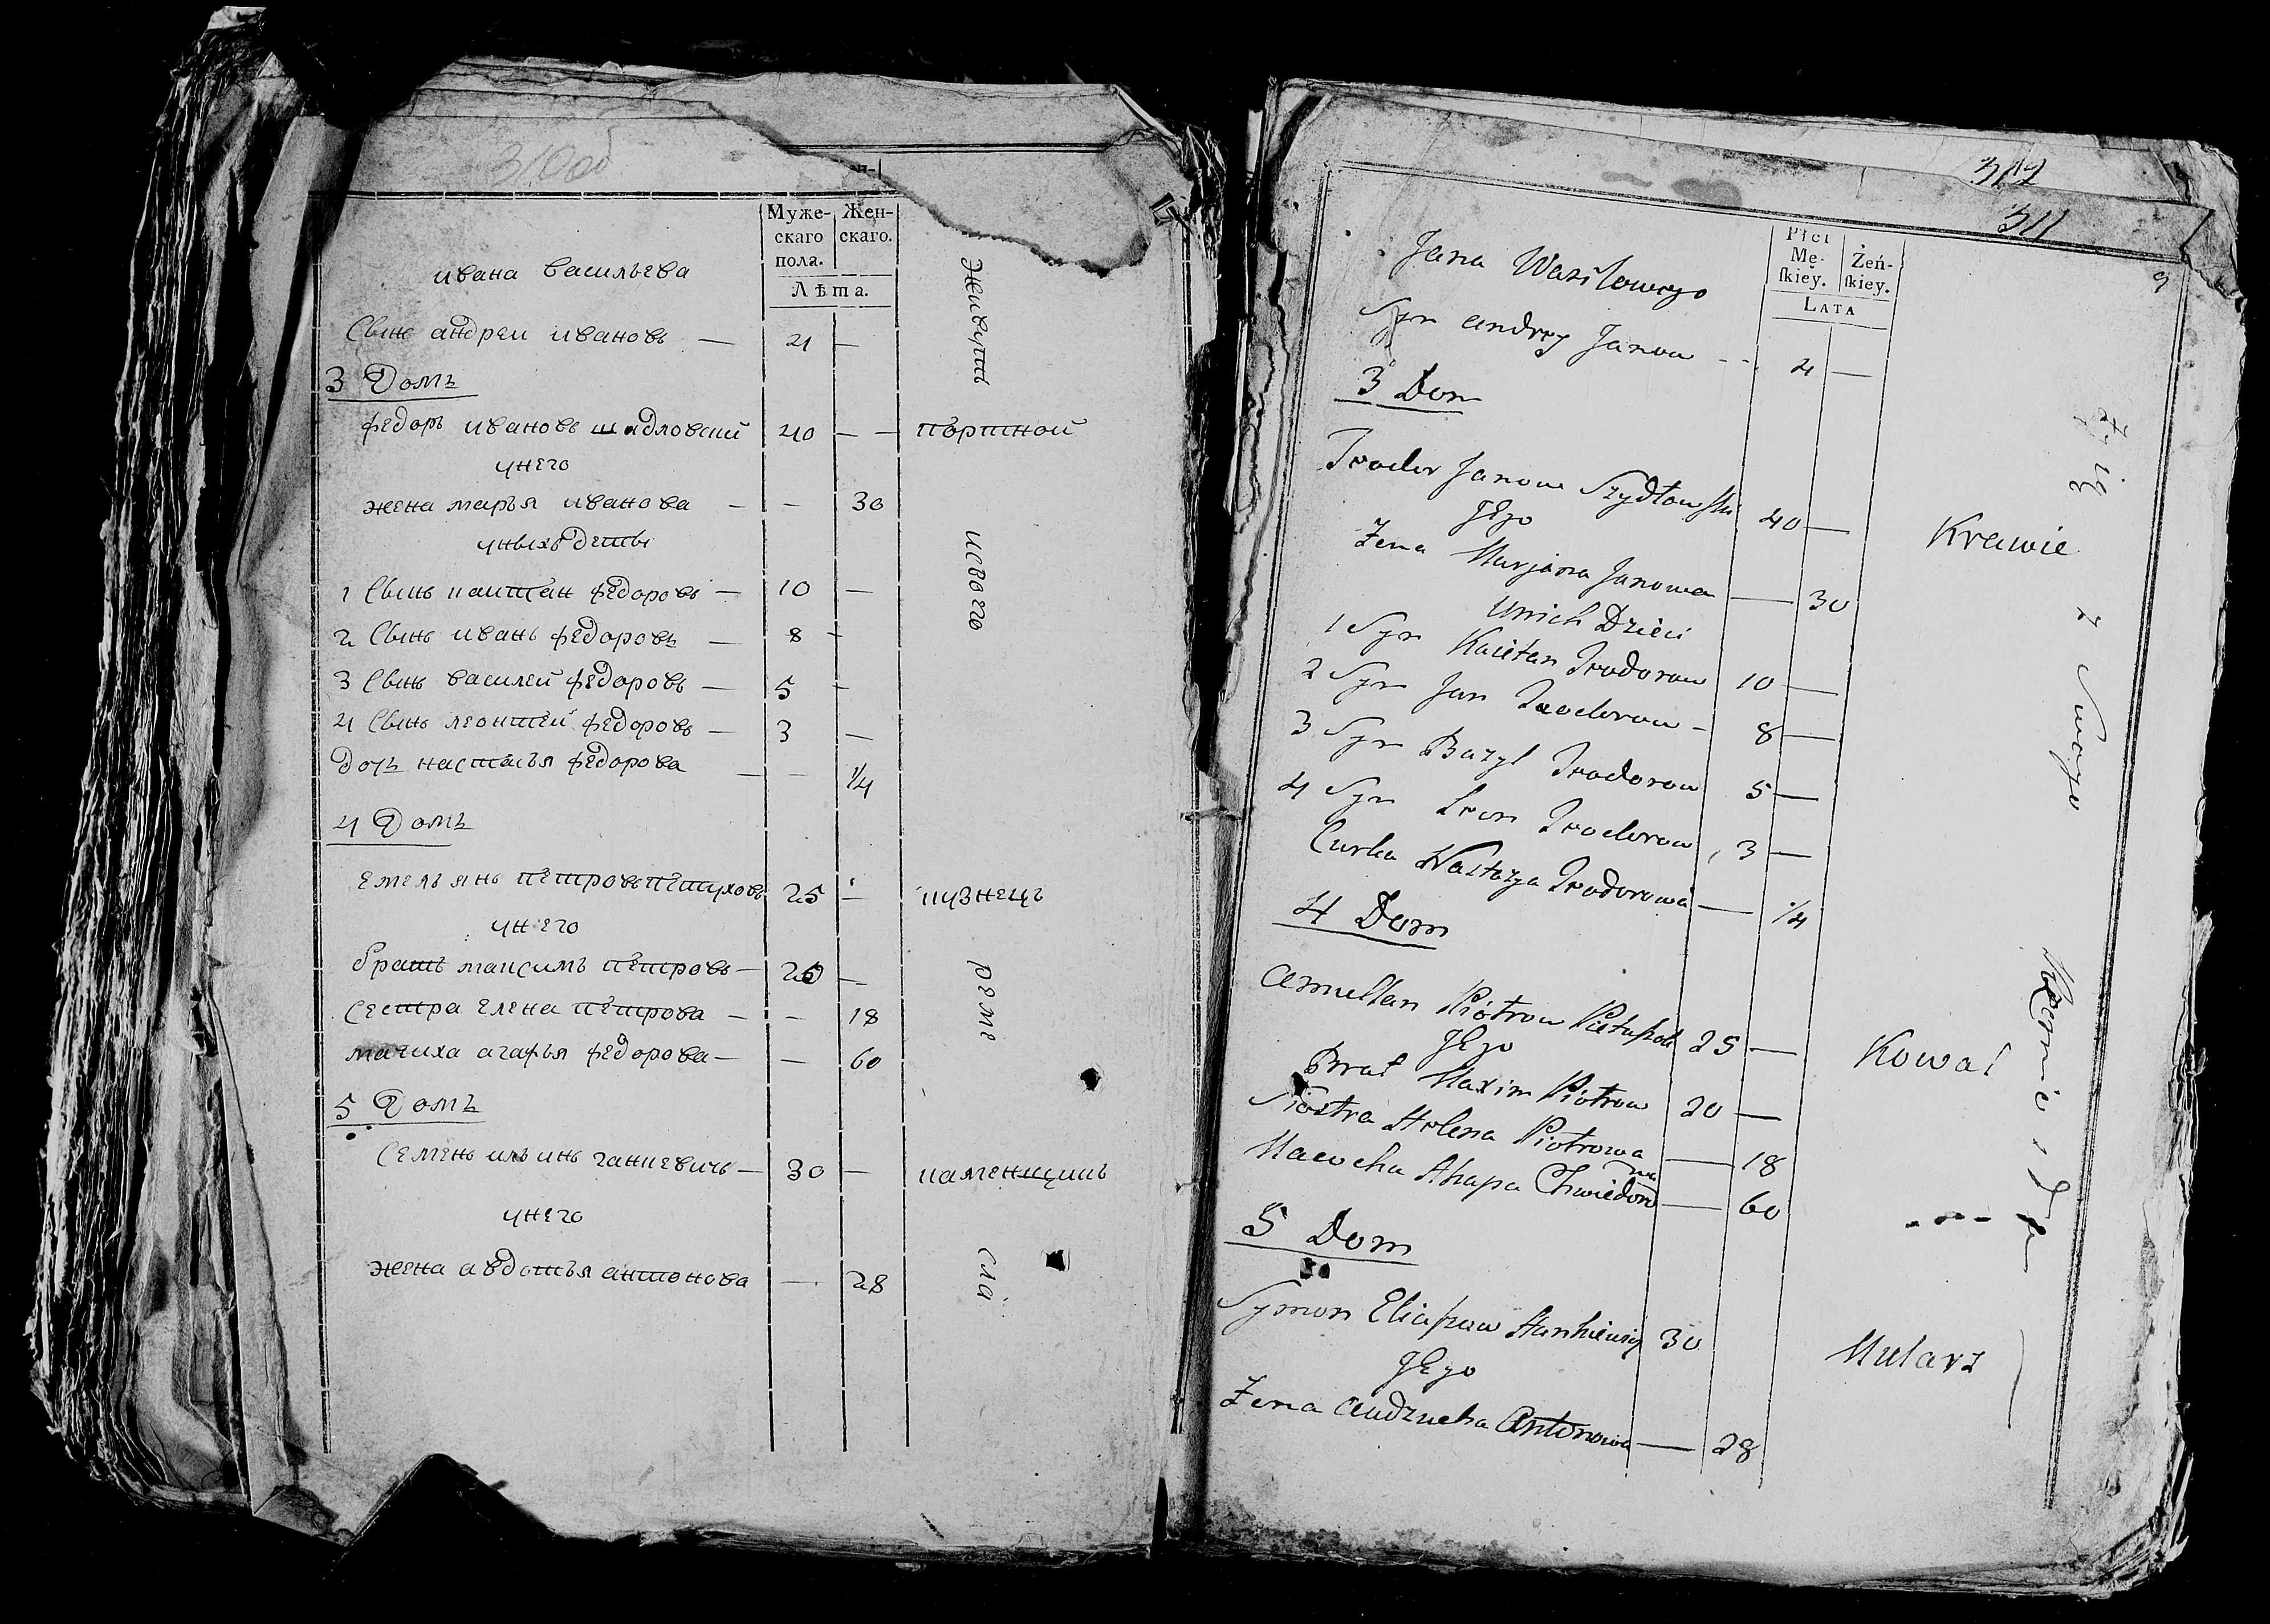 310об
Муже-
скаго
пола.
Жен-
скаго.
Лѣта.
ивана васильева
Сынъ андреи ивановъ — 4 —
3 Домъ
федоръ ивановъ шидловский 40 — — портной
унего
жена марья иванова — — 30
уныхъ дети
1 Сынъ каитан федоровъ — 10 —
2 Сынъ иванъ федоровъ — 8 -
3 Сынъ василей федоровъ — 5 -
4 Сынъ леонтей федоровъ — 3 —
дочь настасья федорова — — 1/4
4 Домъ
емельянъ петровъ петуховъ 25 — кузнецъ
унего
братъ максимъ петровъ — 20 —
сестра елена петрова — — 18
мачиха агафья федорова — — 60
5 Домъ
Семенъ ильинъ ганкевичь — 30 — каменщикъ
унего
жена авдотья антонова — 28
Живутъ
изсвоего
реме
сла
312
311
9
Płci
Mę-
ſkiey.
Żeń-
ſkiey.
LATA
Jana Wasilowego
Syn Andrzy Janow - - 4 —
3 Dom
Teodor Janow Szydłowski 40 — Krawie
JEgo
Zena Marjana Janowa — 30
Unich Dzieci
1 Syn Kaietan Teodorow 10 —
2 Syn Jan Teodorow - 8 —
3 Syn Bazyl Teodorow 5 —
4 Syn Leon Teodorow 3 —
Curka Nastazya Teodorowa — 1/4
4 Dom
Amellan Piotrow 25 — Kowal
JEgo
Brat Maxim Piotrow 20 —
Siostra Helena Piotrowa — 18
Macocha Ahapa Chwiedorowna — 60
5 Dom
Symon Eliaszow Hankiewicz 30 Mularz
JEgo
Zena Audzucha Antonowa — 28
Zyią
z Swego